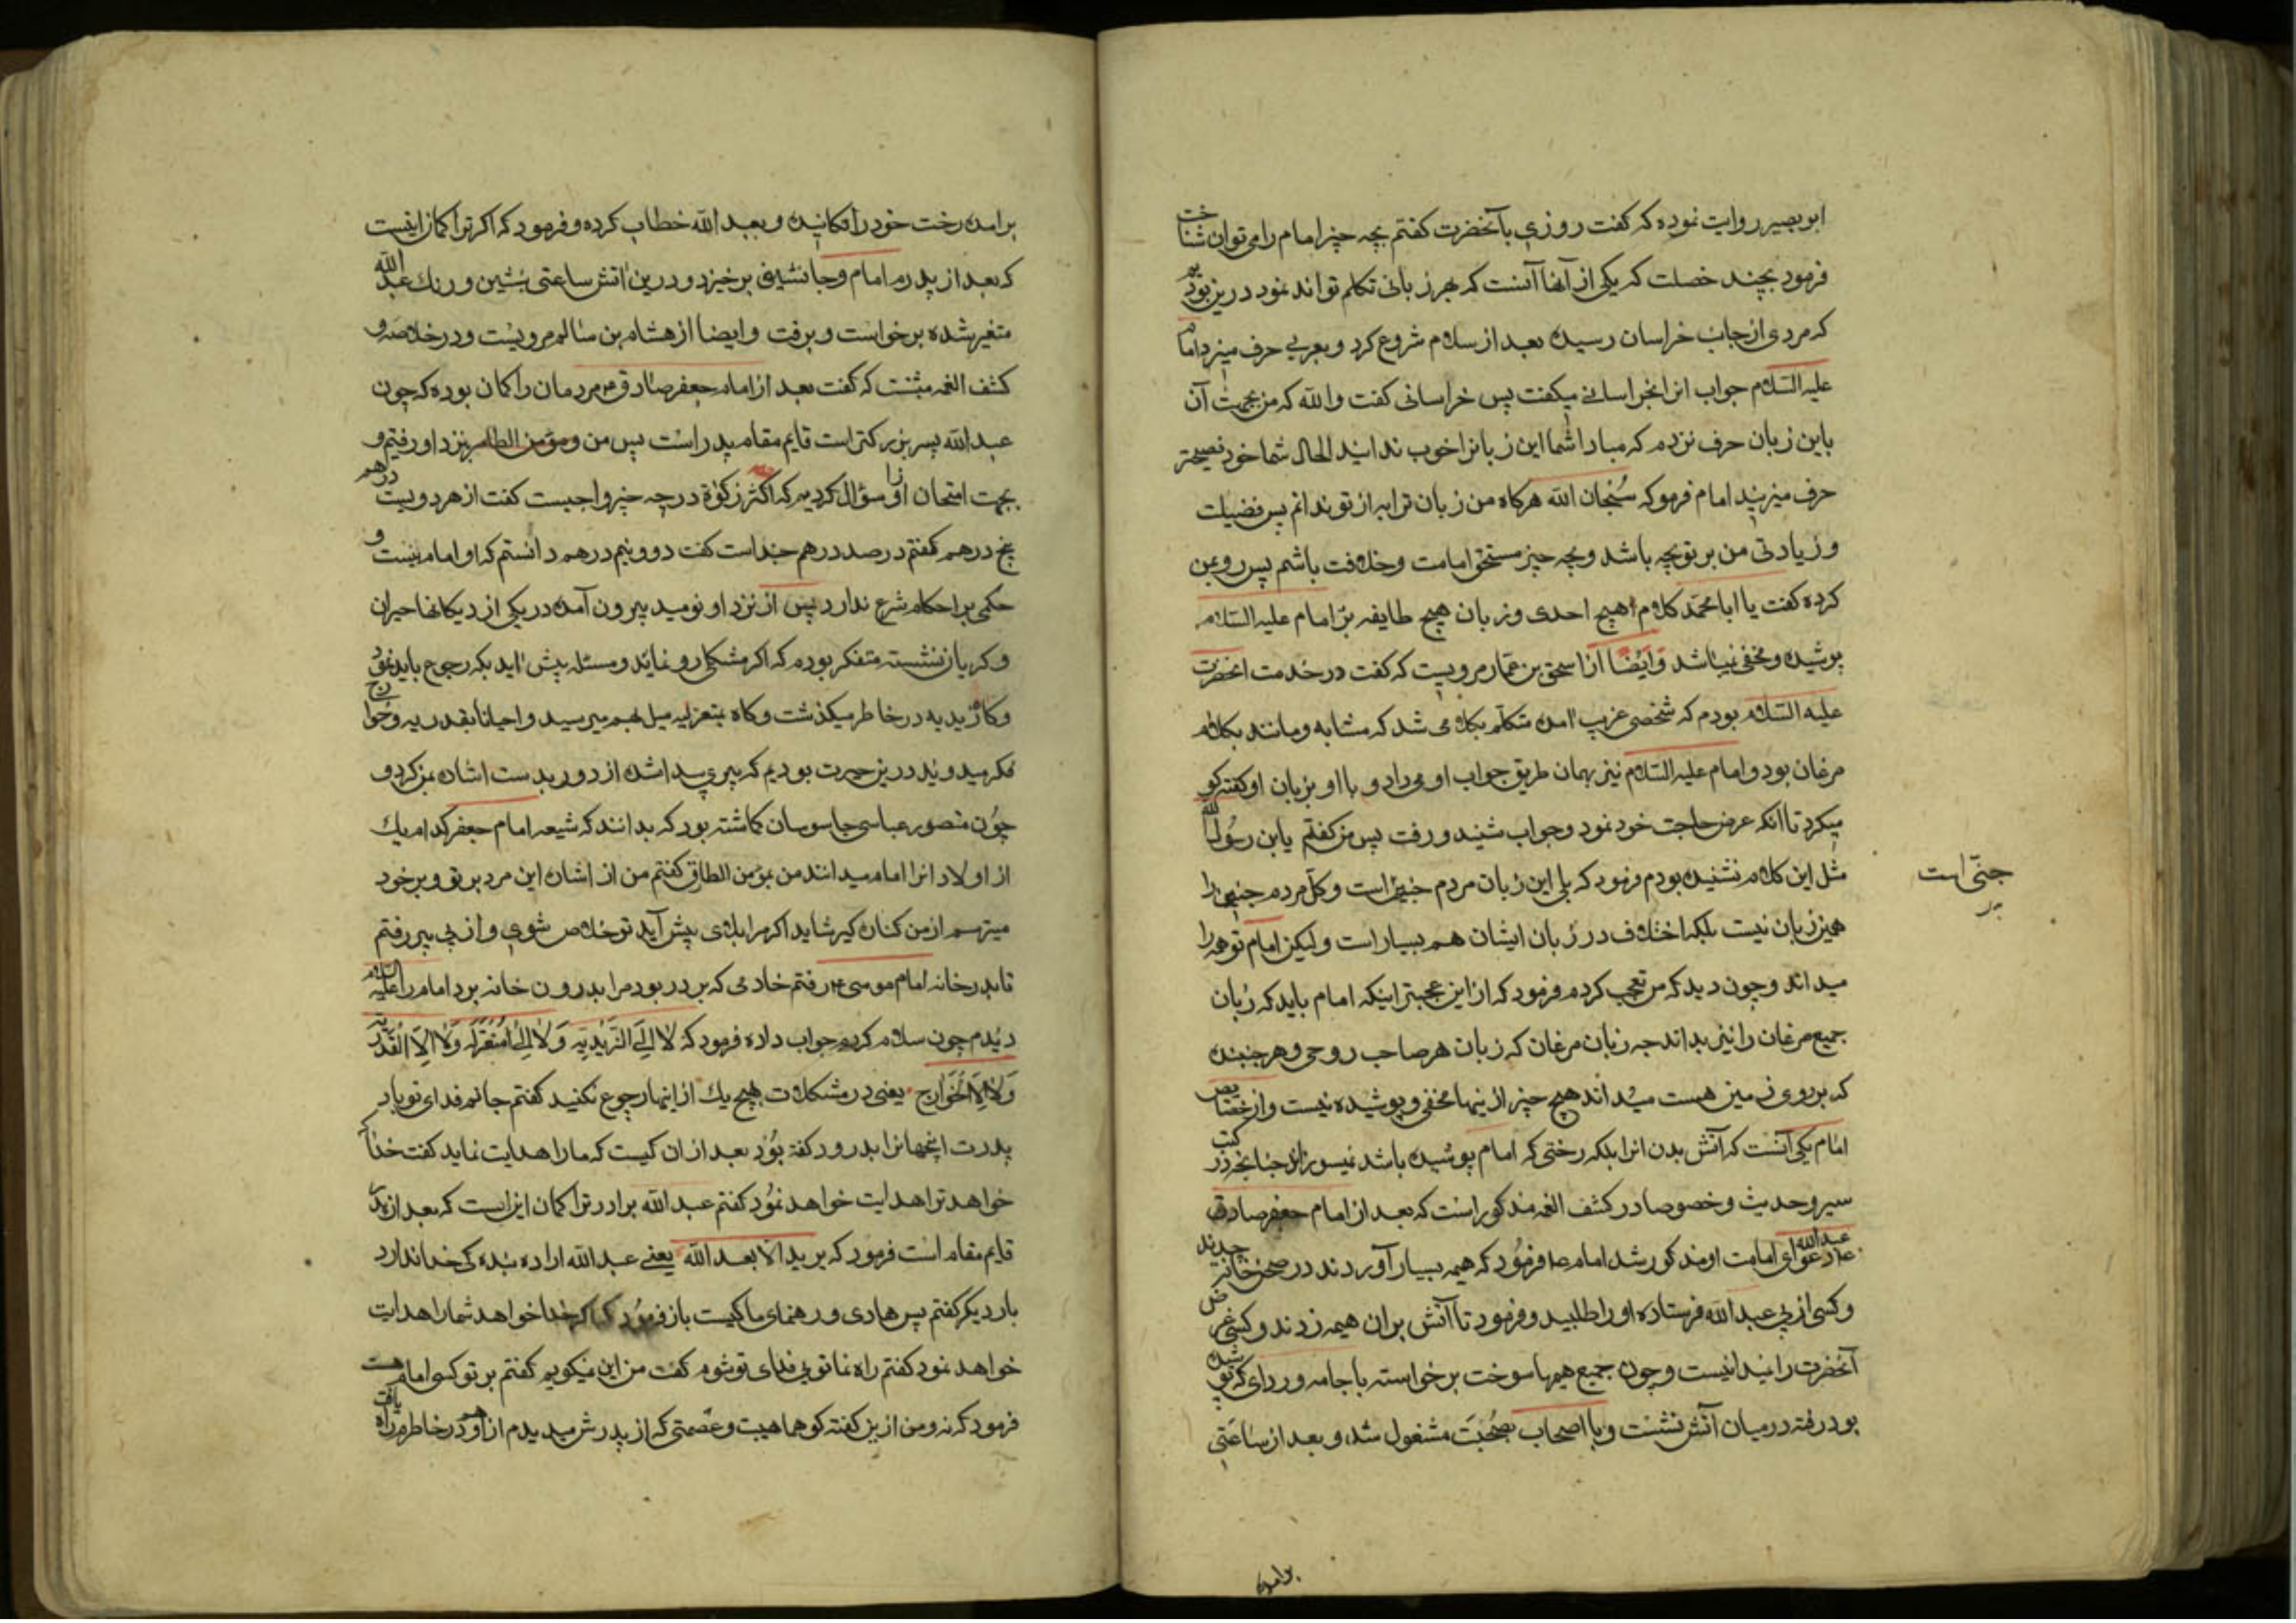 ابو بصیر روایت نموده که گفت روزی بآنحضرت گفتم بچه چیز امام را می توان شناخت
فرمود بچند خصلت که یکی از آنها آنست که بهر زبانی تکلم تواند نمود درین بودیم
که مردی از جانب خراسان رسیده بعد از سلام شروع کرد و بعربی حرف میزد امام
علیه السلام جواب او را بخراسانی میگفت پس خراسانی گفت والله که من بجهت آن
باین زبان حرف نزدم که مبادا شما این زبانرا خوب ندانید الحال شما خود فصیحتر
حرف میزنید امام فرمو که سبحان الله هرگاه من زبان ترا به از تو ندانم پس فضیلت
و زیادتی من بر تو چه باشد و بچه چیز مستحق امامت و خلافت باشم پس رو بمن
کرده گفت یا ابا محمد کلام هیچ احدی و زبان هیچ طایفه بر امام علیه السلام
پوشیده و مخفی نمیباشد و ایضا از اسحق بن عمار مرویست که گفت در خدمت انحضرت
علیه السلام بودم که شخصی غریب امده متکلم بکلامی شد که مشابه و مانند بکلام
مرغان بود و امام علیه السلام نیز بهمان طریق جواب او می داد و با او بزبان او گفتگو
میکرد تا انکه عرض حاجت خود نمود و جواب شنید و رفت پس من گفتم یابن رسول الله
مثل این کلام نشنیده بودم فرمود که بلی این زبان مردم چین است و کل مردم چین را
همین زبان نیست بلکه اختلاف در زبان ایشان هم بسیار است ولیکن امام تو همه را
میداند و چون دید که من تعجب کردم فرمود که از این عجبتر اینکه امام باید که زبان
جمیع مرغان را نیز بداند چه زبان مرغان که زبان هر صاحب روحی و هر جنبنده
که بر روی زمین هست میداند هیچ چیز از اینها مخفی و پوشیده نیست و از خصایص
امام یکی آنست که آتش بدن انرا بلکه رختی که امام پوشیده باشد نمیسوزاند چنانچه در کتب
سیر و حدیث و خصوصا در کشف الغمه مذکور است که بعد از امام جعفر صادق
ع عبد الله دعوای امامت او مذکور شد امام ع فرمود که هیمه بسیار آوردند در صحن خانه چیدند
و کسی از پی عبد الله فرستاده او را طلبید و فرمود تا آتش بران هیمه زدند و کسی غرض
آنحضرت را نمیدانست و چون جمیع هیمها سوخت برخواسته با جامه و ردای که پوشیده
بود رفته در میان آتش نشست و با اصحاب بصحبت مشغول شد و بعد از ساعتی
جنّی است
برامده
برامده رخت خود را تکانیده و بعبد الله خطاب کرده و فرمود که اگر ترا گمان اینست
که بعد از پدرم امام و جانشینی برخیز و درین آتش ساعتی بنشین و رنک عبد الله
متغیر شده برخواست و برفت و ایضا از هشام بن سالم مرویست و در خلاصه و
کشف الغمه مثبتست که گفت بعد از امام جعفر صادق ع مردمان را گمان بوده که چون
عبد الله پسر بزرکتر است قایم مقام پدر است پس من و مؤمن الطاق نزد او رفتیم و
بجهت امتحان او را سؤال کردیم که اکثر زکوة در چه چیز واجبست گفت از هر دویست درهم
پنج درهم گفتم در صد درهم چند است گفت دو و نیم درهم دانستم که او امام نیست و
حکمی بر احکام شرع ندارد پس از نزد او نومید بیرون آمده در یکی از دکانها حیران
و گریان نشسته متفکر بودم که اگر مشکلی رو نماید و مسئله پیش اید بکه رجوع باید نمود
و گاه زیدیه در خاطر میگذشت و گاه بمعتزلیه میل بهم میرسید و احیانا بقدریه و خوارج
فکر میدوید درین حیرت بودیم که پیری پیدا شده از دور بدست اشاره بمن کرد و
چون منصور عباسی جاسوسان گماشته بود که بدانند که شیعه امام جعفر کدام یک
از اولاد انرا امام میدانند من بمؤمن الطاق گفتم من از اشاره این مرد بر تو و بر خود
میترسم از من کناره گیر شاید اگر مرا بلای پیش آید تو خلاص شوی و از پی پیر رفتم
تا بدر خانه امام موسی ع رفتم خادمی که بر در بود مرا بدرون خانه برد امام را علیه السلام
دیدم چون سلام کردم جواب داده فرمود که لا اِلَی الزَّیدِیه وَلا اِلَی المُعتَزَلَه وَلا اِلَی القَدَریه
وَلا اِلَی الخَوارِج یعنی در مشکلات هیچ یک از اینها رجوع نکنید گفتم جانم فدای تو باد
پدرت اینجهانرا بدرود گفته بود بعد از ان کیست که ما را هدایت نماید گفت خدا که
خواهد ترا هدایت خواهد نمود گفتم عبد الله برادر ترا گمان این است که بعد از پدر
قایم مقام است فرمود که یرید الا بعبد الله یعنی عبد الله اراده بنده کی خدا ندارد
بار دیگر گفتم پس هادی و رهنمای ما کیست باز فرمود که اگر خدا خواهد شما را هدایت
خواهد نمود گفتم راه نما تویی فدای تو شوم گفت من این نمیگویم گفتم بر تو کسی امام هست
فرمود که نه و من ازین گفتگو هما هیبت و عصمتی که از پدرش میدیدم از او هم در خاطرم راه یافت